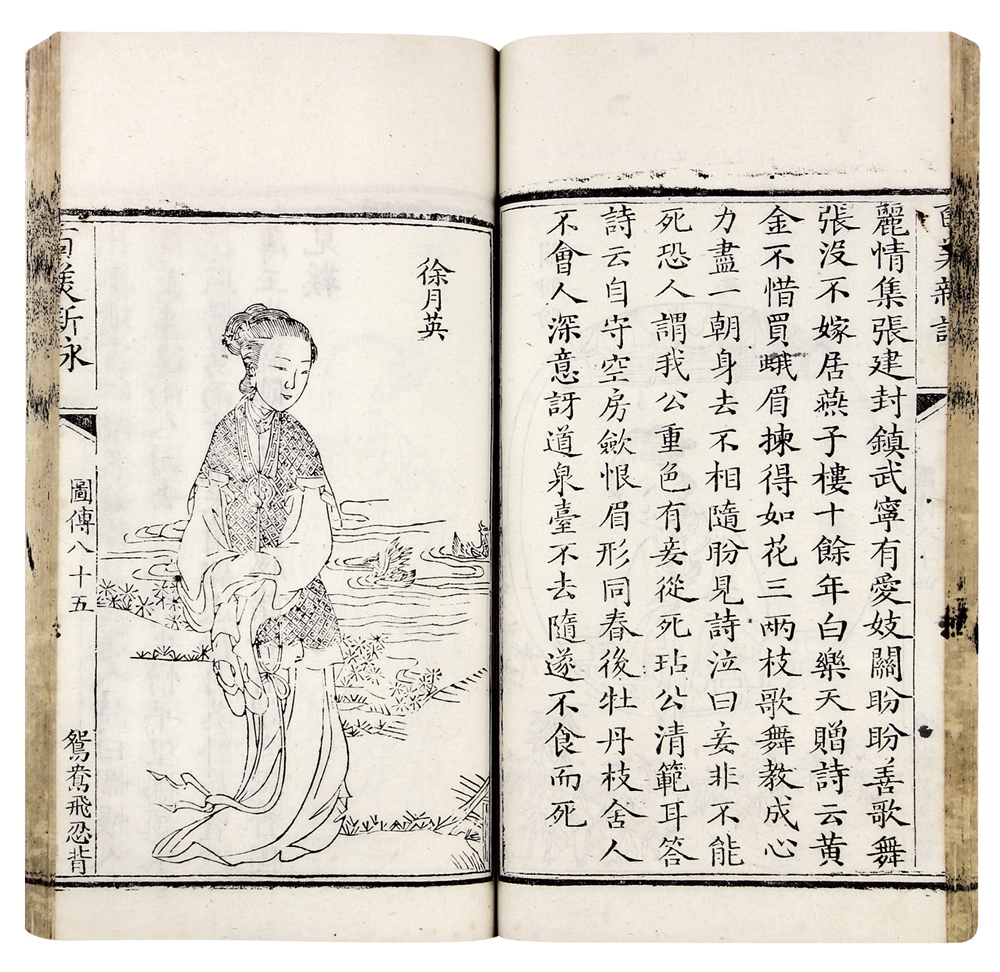 百美新詠
麗情集張建封鎮武寧有愛妓關盼盼善歌舞
張沒不嫁居燕子樓十餘年白樂天贈詩云黃
金不惜買峨眉揀得如花三兩枝歌舞教成心
力盡一朝身去不相隨盼見詩泣曰妾非不能
死恐人謂我公重色有妾從死玷公清範耳答
詩云自守空房歛恨眉形同春後牡丹枝舍人
不會人深意訝道泉臺不去隨遂不食而死
徐月英
百美新詠
圖傳八十五
鴛鴦飛忍背